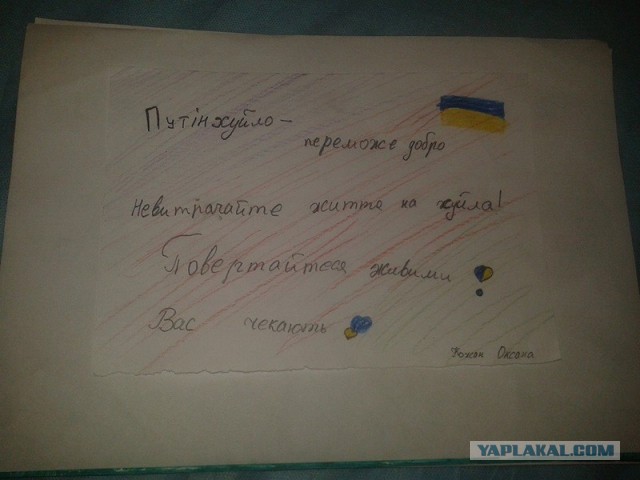 Путінхуйло –
переможе добро
Невитрачайте життя на хуйла!
Повертайтеся живими
Вас чекають
Оксана
YAPLAKAL.COM